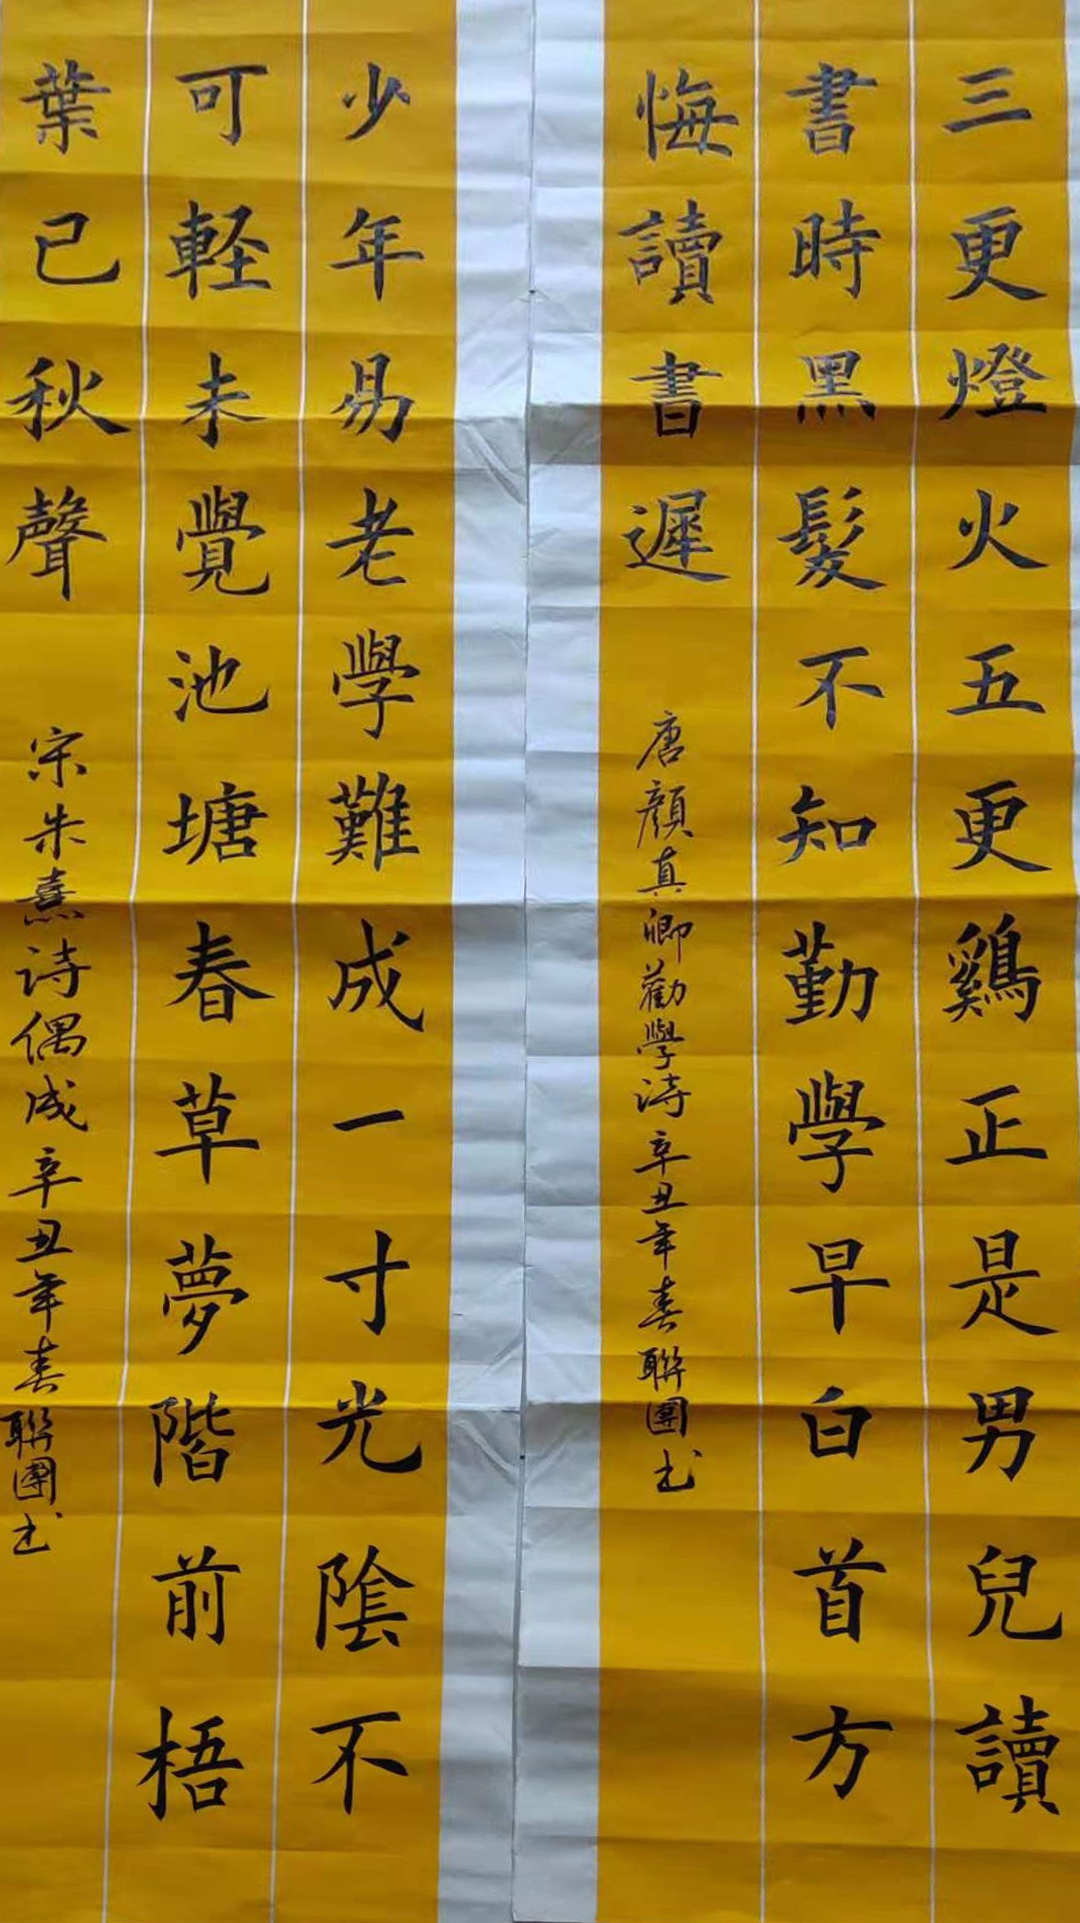 三更燈火五更鷄正是男兒讀
書時黑髮不知勤學早白首方
悔讀書遲
唐顏真卿勸學詩辛丑年春聯團书
少年易老學難成一寸光陰不
可軽未覺池塘春草夢階前梧
葉已秋聲
宋朱熹诗偶成辛丑年春聯團书